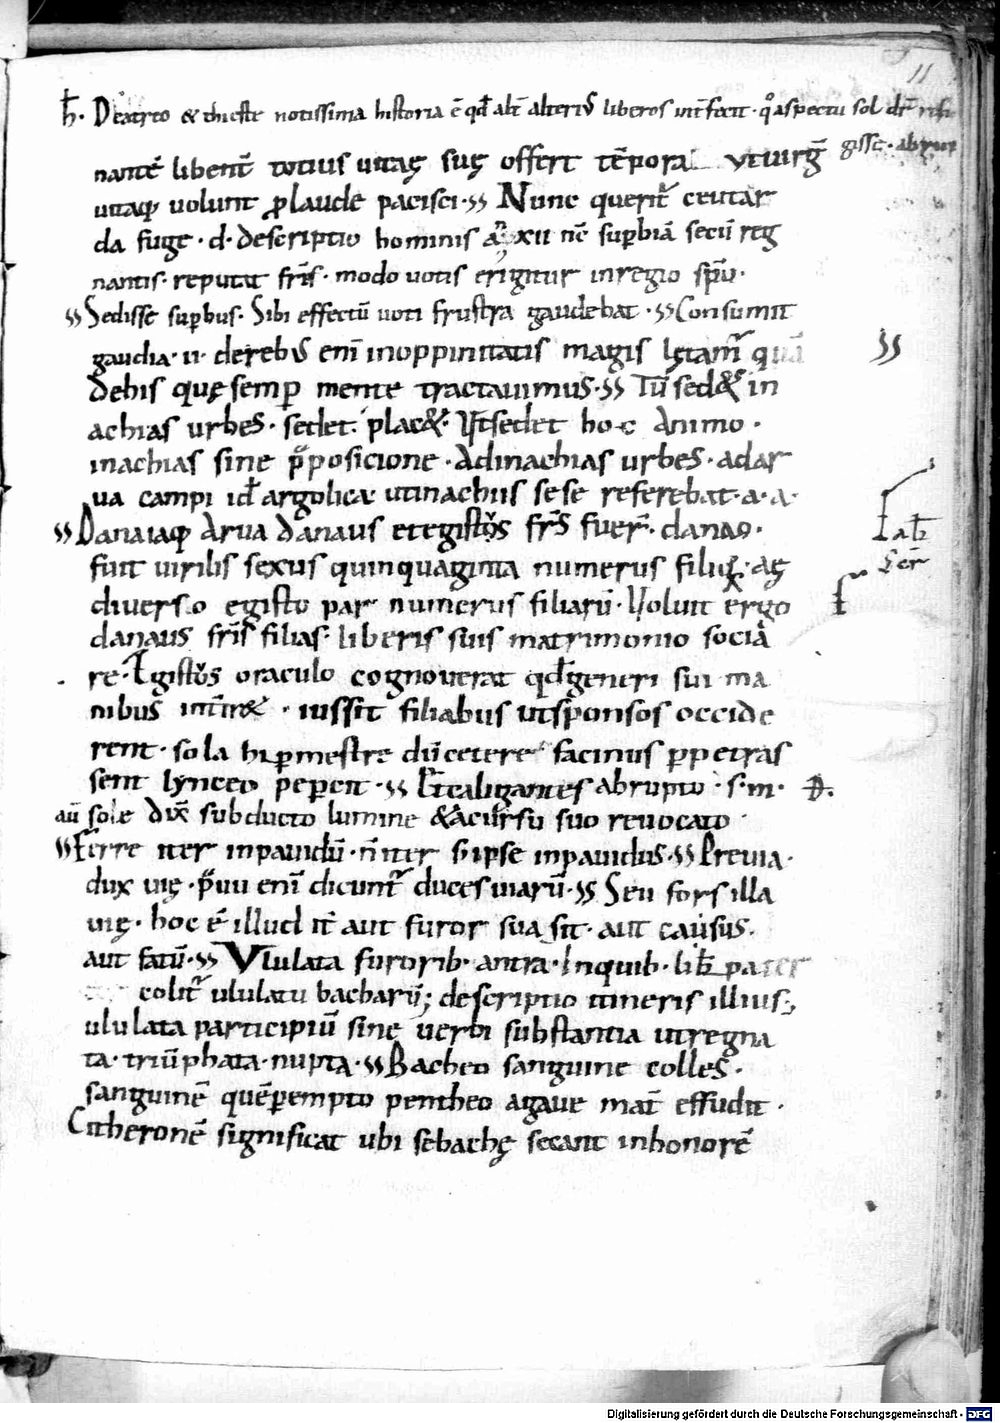 11
h̄. De atreo & thieste notissima historia ē qđ alt̄ alteriꝰ liberos int̄fecit · qͦ aspectu sol dr̄
gisse · abrup
nantē libent̄ totius uitaę suę offert tēpora ut uirḡ
uitāq; uolunt ꝓ laude pacisci · Nunc querit̄ ceu tar
da fuge · d · descriptio hominis xii nē suꝑbiā secū reg
nantis · reputat fr̄is · modo uotis erigitur in regio spū ·
Sedisse suꝑbus · Sibi effectū uoti frustra gaudebat · Consumit
gaudia · ii · de rebꝰ enī inoppinitatis magis lętam̄ quā
de his quę semꝑ mente tractauimus · Tū sed & in
achias urbes · sedet · plac& · Ut sedet hoc animo ·
inachias sine p̄posicione · Ad inachias urbes · ad ar
ua campi id argolica ut inachiis sese referebat · a · a ·
Danaiaq; arua danaus et egistꝰ fr̄s fuer̄ · danao ·
fuit uirilis sexus quinquaginta numerus filiuꝝ · aę
diuerso egisto par numerus filiarū · Uoluit ergo
danaus fr̄is filias liberis suis matrimonio socia
re · Ęgistꝰ oraculo cognouerat qđ generi sui ma
nibus int̄ir& · iussit filiabus ut sponsos occide
rent · sola hiꝑmestre dū cetere facinus ꝑpetras
sent lynceo peꝑcit · Et caligantes abrupto · s · m ·
aū sole dix̄ subducto lumine & a cursu suo reuocato ·
Ferre iter inpauidū · n̄ iter s; ipse inpauidus · Preuia ·
dux uię · p̄uii enī dicunt̄ duces uiarū · Seu fors illa
uię · hoc ē illud it̄ aut furor sua sit · aut causus ·
aut fatū · Ululata furorib; antra · In quib; lib̄ pater
colit̄ ululatu bacharū; descriptio itineris illius;
ululata participiū sine uerbi substantia ut regna
ta · triūphata · nupta · Bacheo sanguine colles ·
sanguinē quē ꝑempto pentheo agaue mat̄ effudit ·
Citheronē significat ubi se bachę secant in honorē